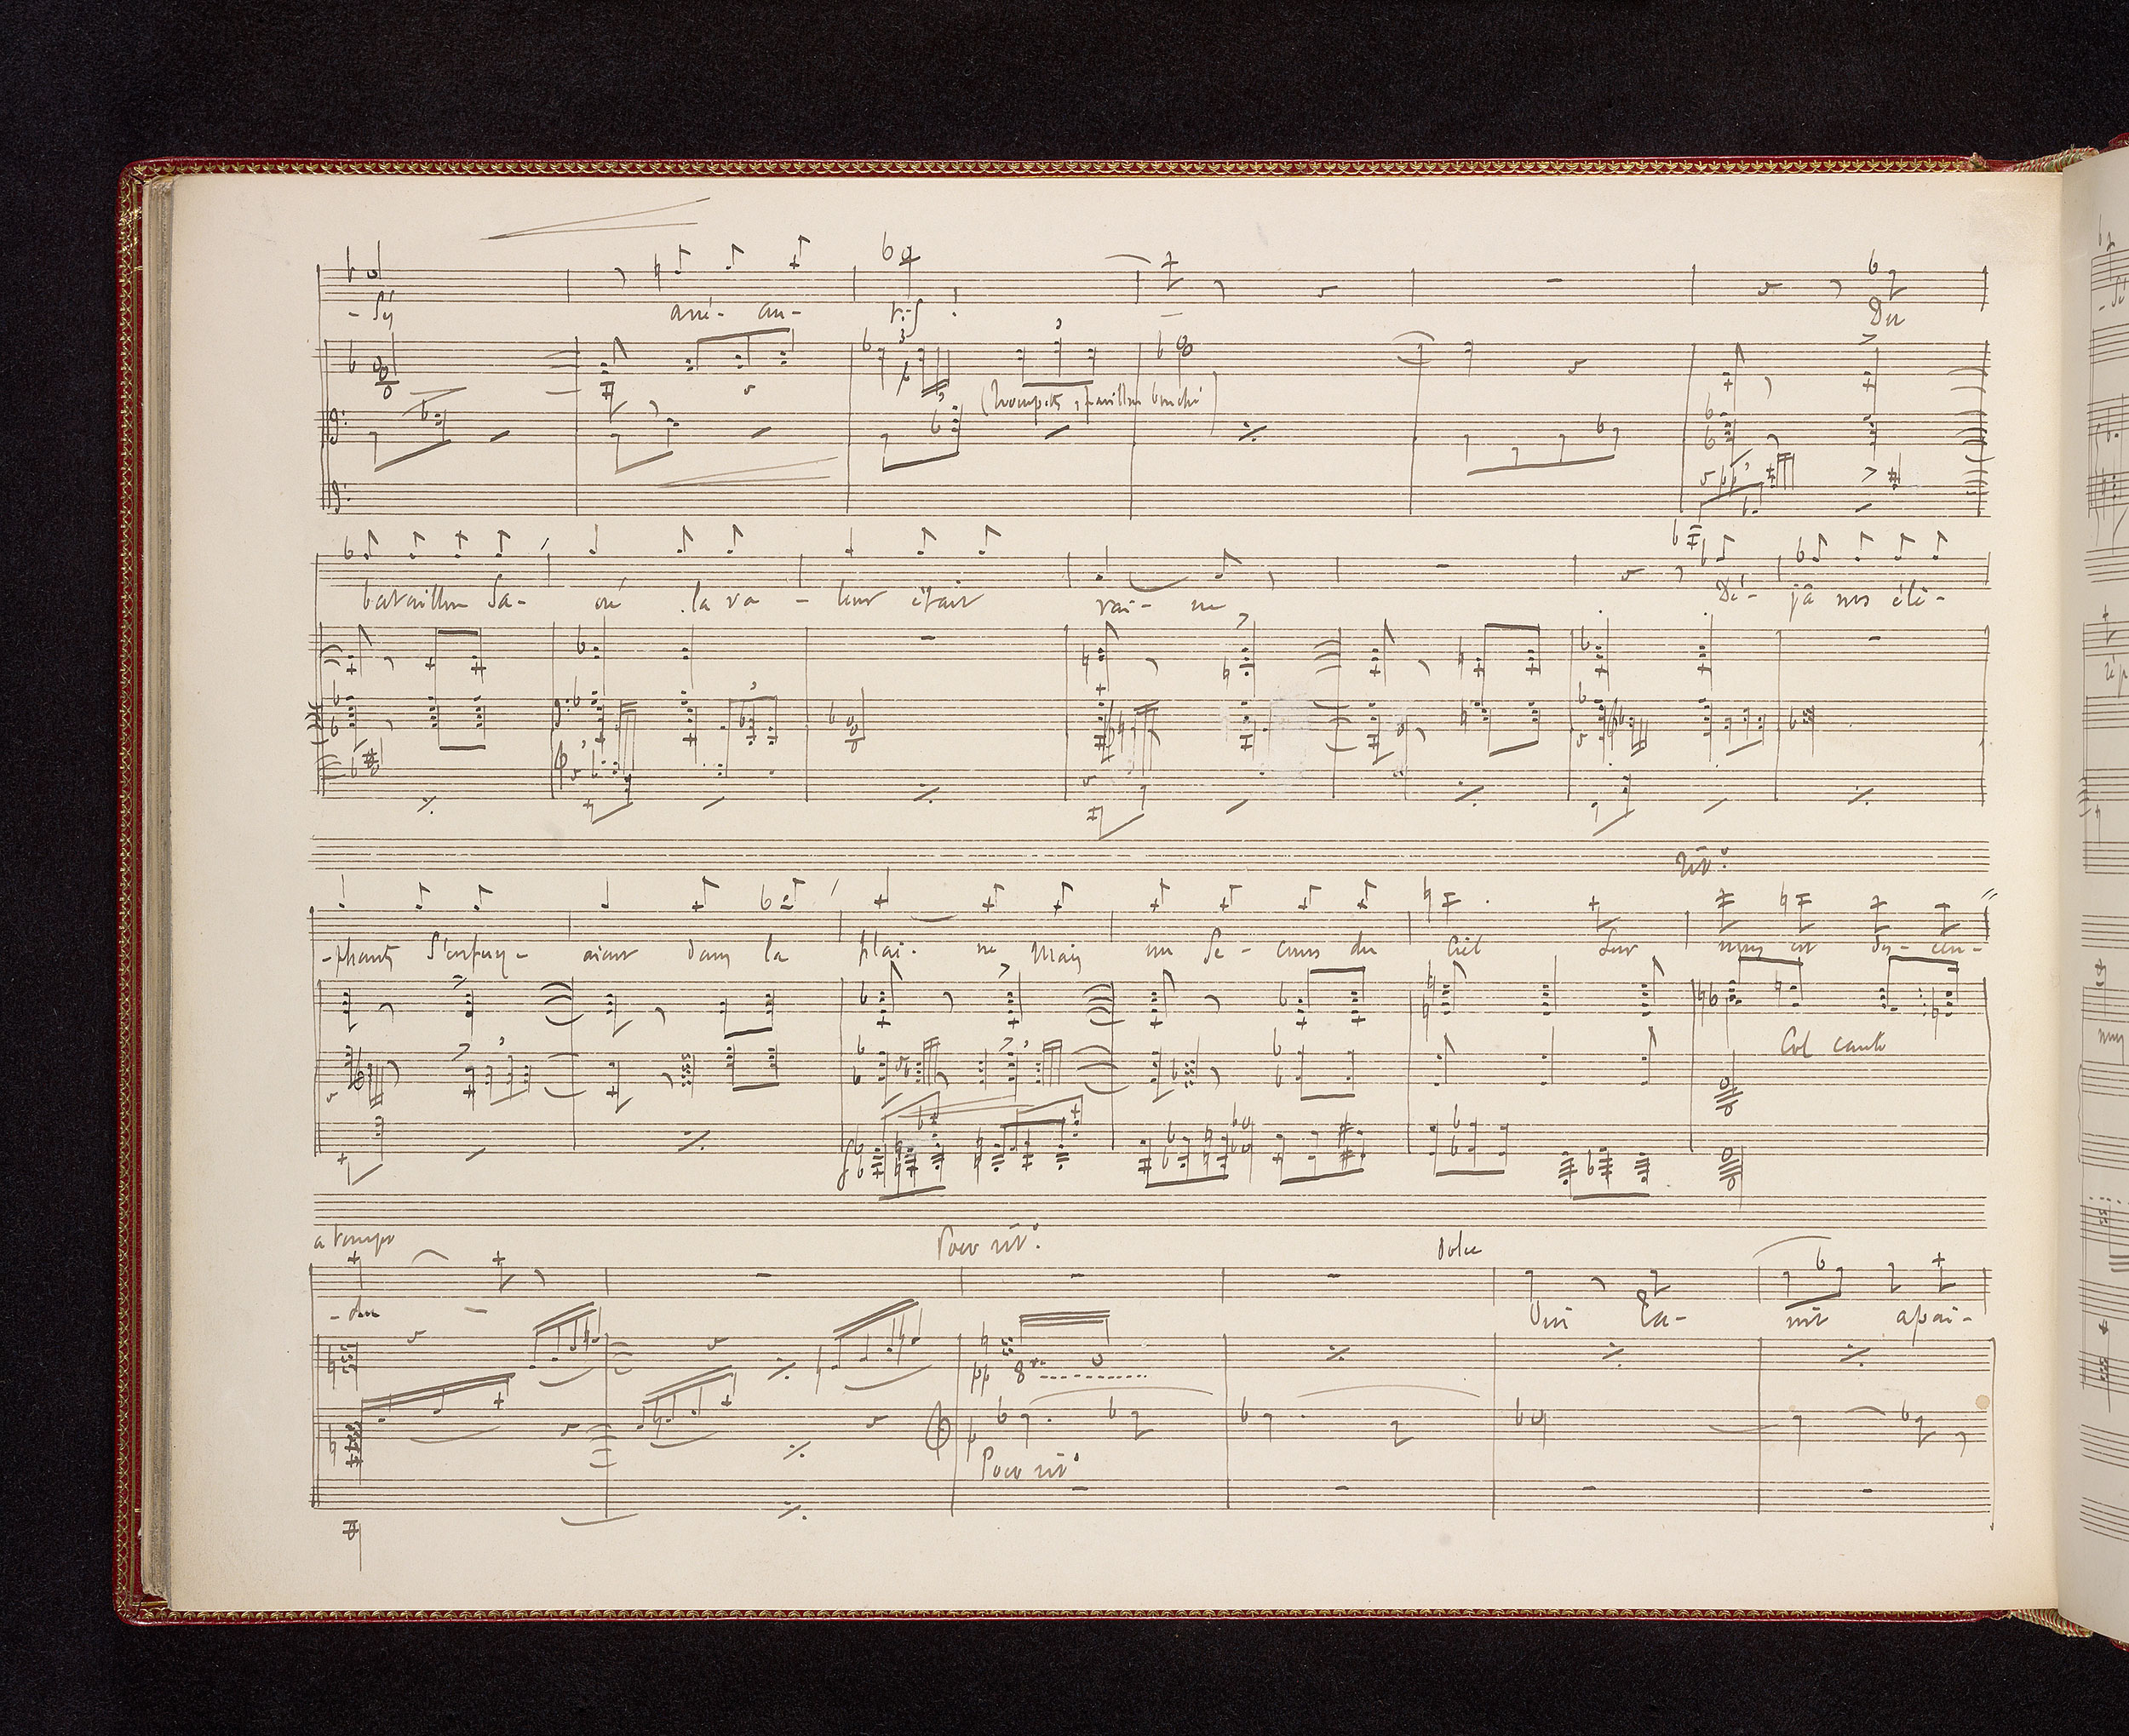 - sés anéi- an- tis ! - Du
(trompette, pavillon bouché)
pp
bataillon Sa- cré la va - leur était vai- ne Dé- jà nos élé-
rit:
-phants s'enfuy- aient dans la plai- ne Mais un Se- cours du Ciel sur nous est des- cen-
Col canto
a tempo Poco rit: dolce
- du - Qui La- nit apai-
pp 8va
p
Poco rit: